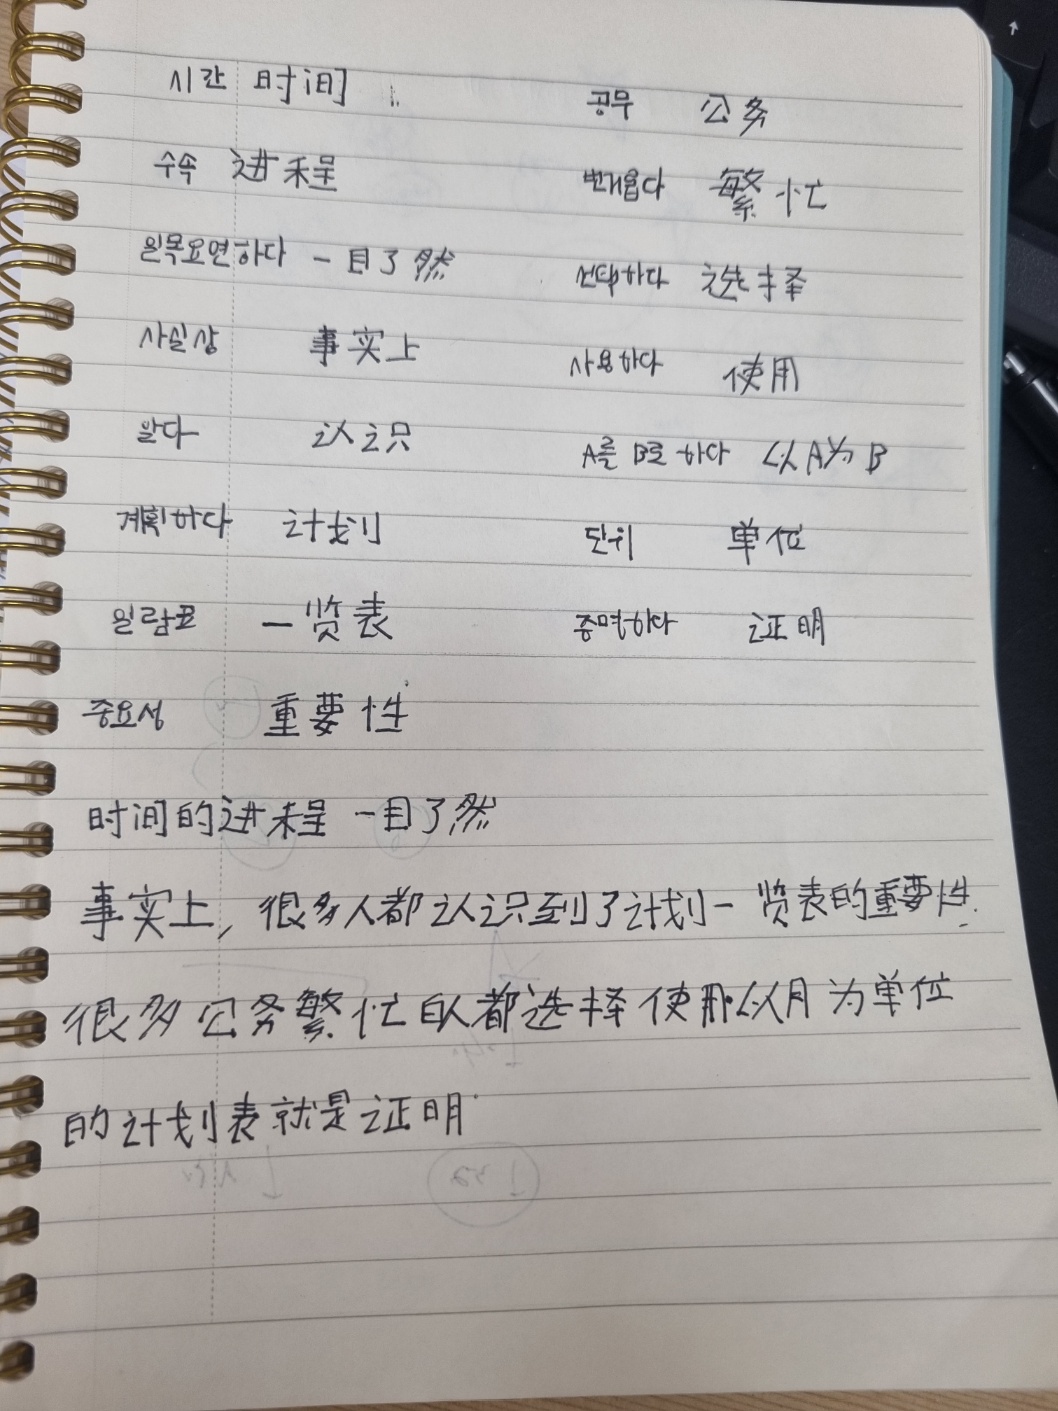 시간 时间 공무 公务
수속 进程 번거롭다 繁忙
일목요연하다 一目了然 선택하다 选择
사실상 事实上 사용하다 使用
알다 认识 A를 B로 하다 以A为B
계획하다 计划 단위 单位
일람표 一览表 증명하다 证明
중요성 重要性
时间的进程 一目了然
事实上, 很多人都认识到了计划一览表的重要性.
很多公务繁忙的人都选择使用以月为单位
的计划表就是证明.